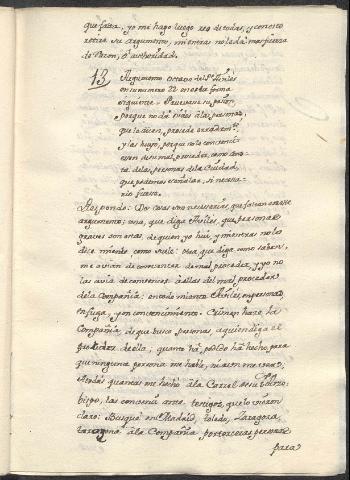 que falta, yo me hago luego reo de todas, y con esto
retire su argumento, mientras no le dá mas fuerza
de Razon, ó authoridad.
13 Argumento octavo del Pe Aviles
en su numero 22 en esta forma
siguiente = Prueva se su pasion,
porque no dá oidos á las personas,
que le dicen, procede errado en
y las huye, porque no le convencie-
ssen de su mal proceder, como cons-
ta de las personas de la Ciudad,
que podemos señalar, si necesa-
rio fuera.
Respondo: Dos cosas son necesarias, que faltan en este
argumento; una, que diga Aviles, que personas
graves son estas, de quien yo hui, y mientras no les
dice miente como suele: otra, que diga como
me avian de convencer de mal proceder, y yo no
las avia de convencer á ellas del mal proceder
de la Compañia: en todo miente Aviles, en personas,
en fuga, y en convencimiento. Crimen hace la
Compañia, de que busco personas a quien diga el
proceder de ella, quanto há podido há hecho para
que ninguna persona me hable, ni aun me vea.
A todas quantas me hecho á la Carcel de su Arzo-
bispo, las convencí ante testigos, que lo vieron
claro: Busqué en Madrid, toledo, Zaragoza,
tarazona á la Compañia por terceras personas
para